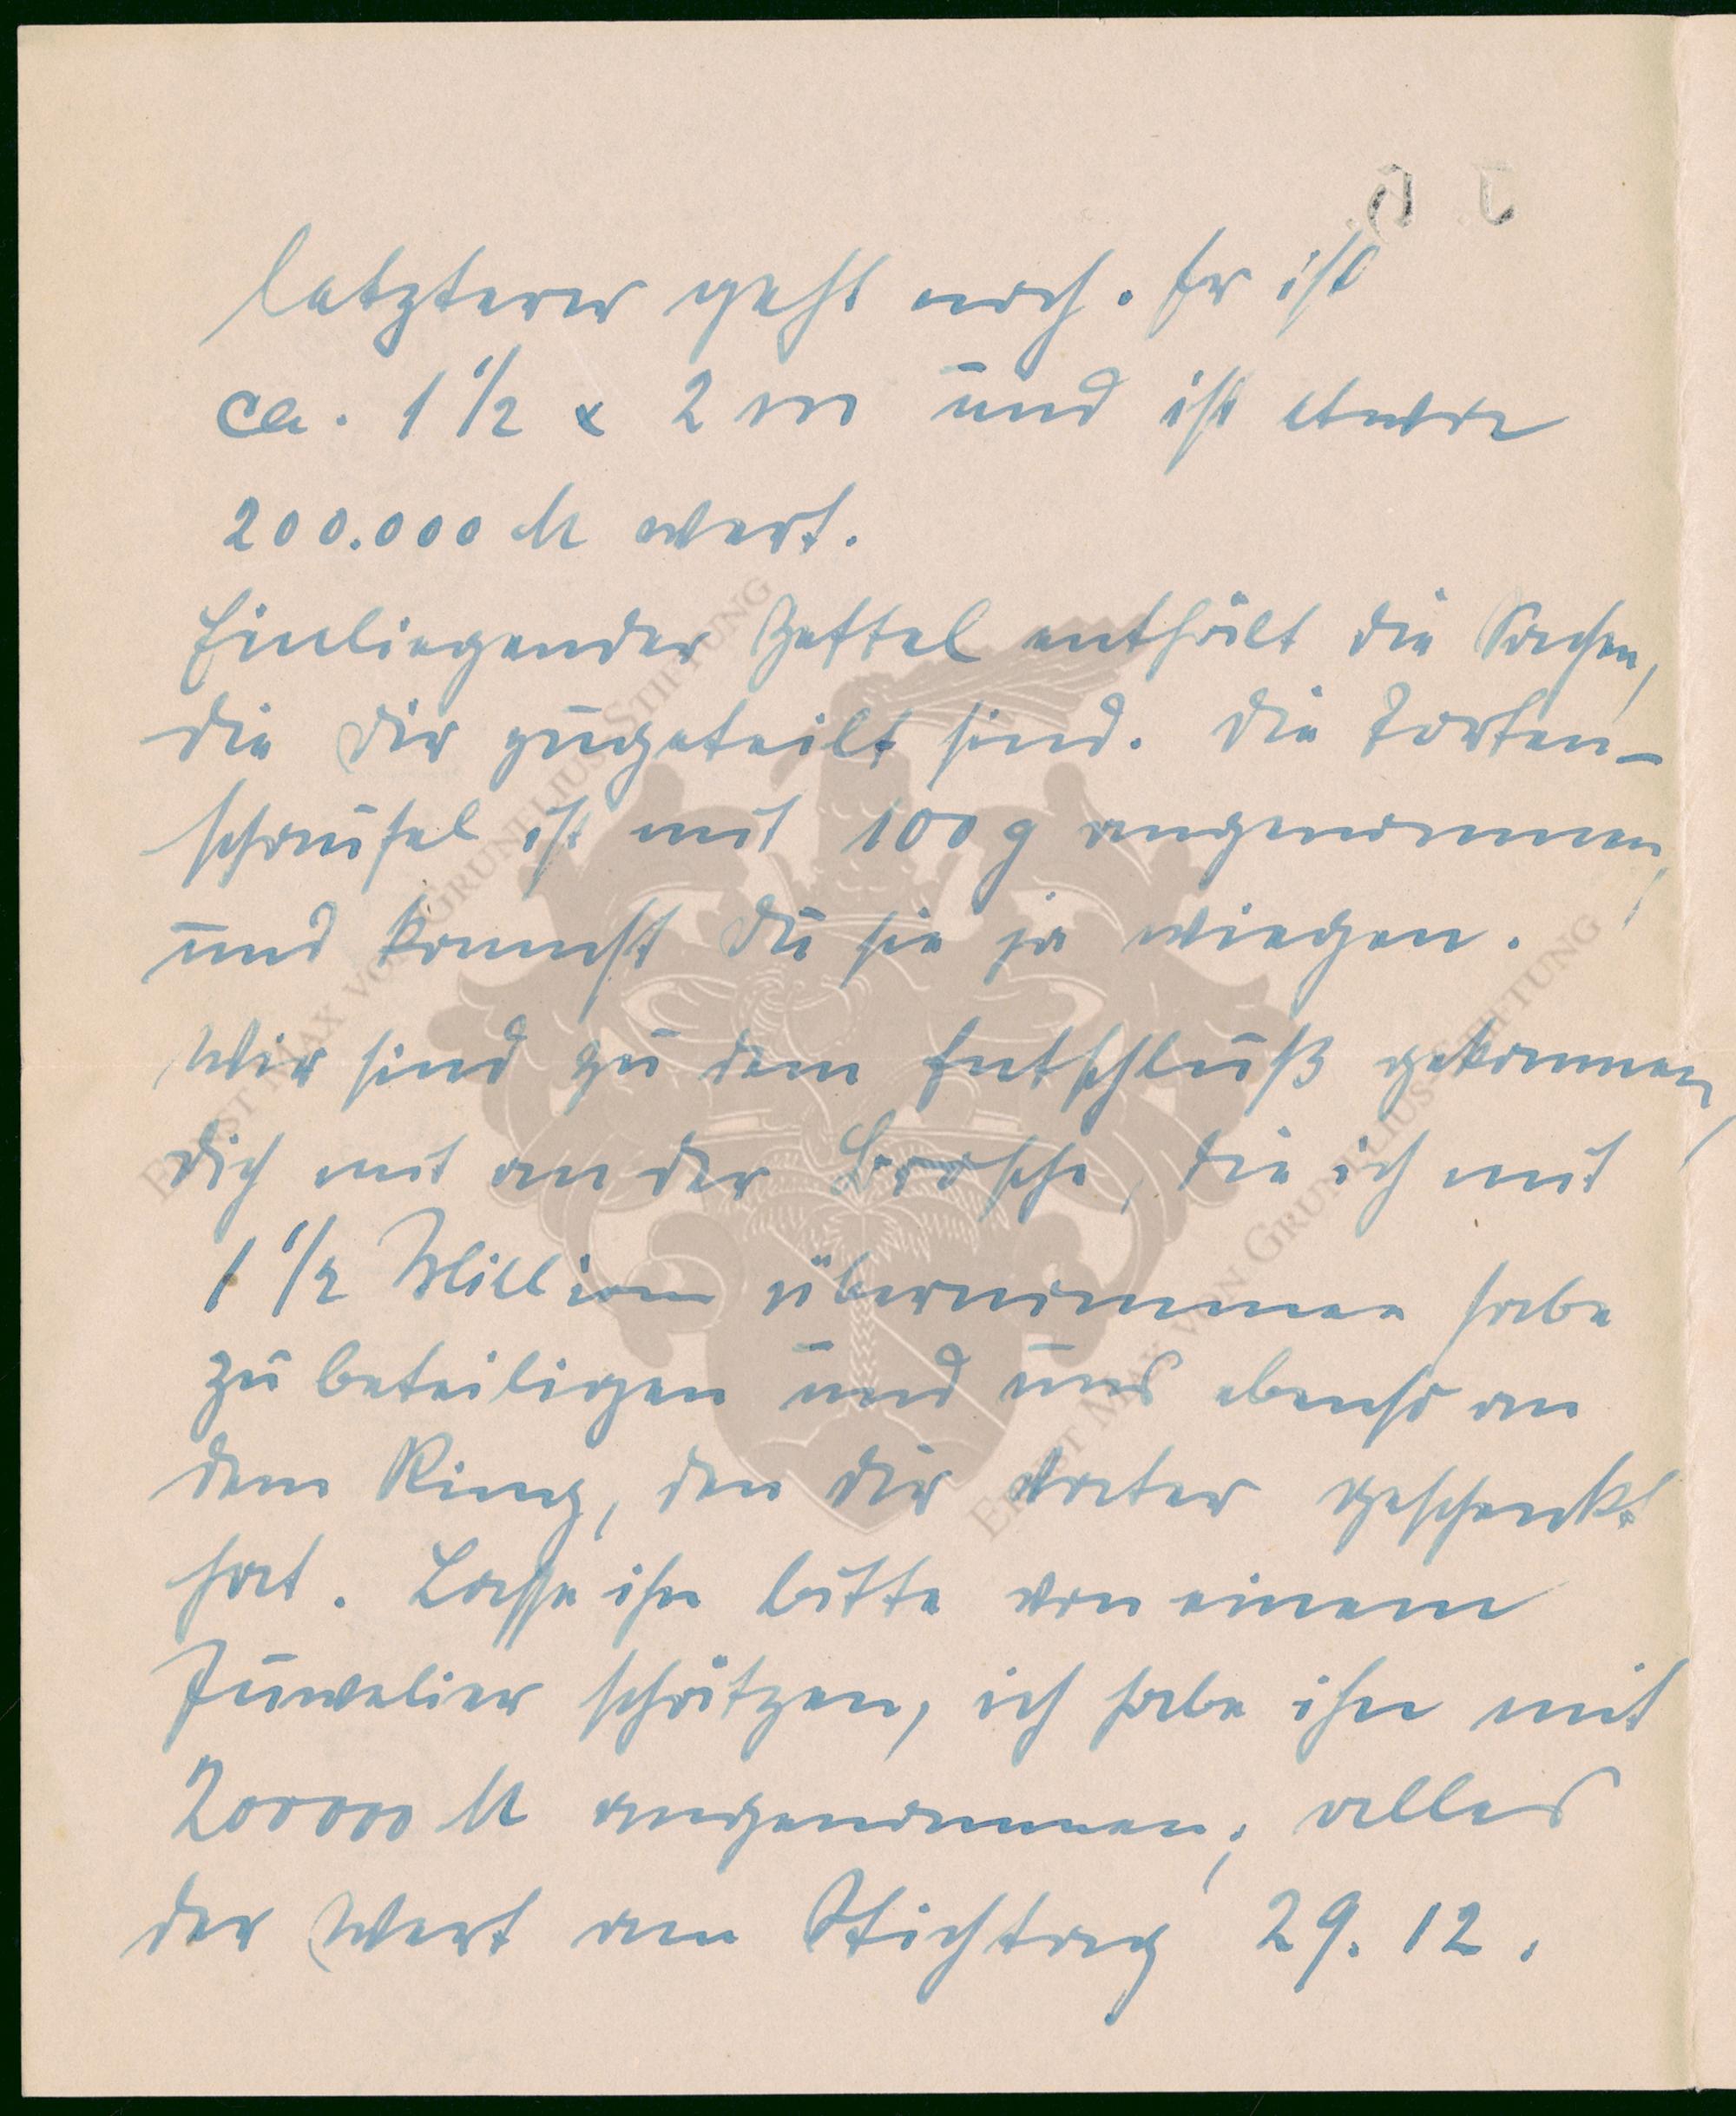 J. G.
letzterer geht noch. Er ist
ca. 1 1/2 x 2 m und ist etwa
200.000 M wert.
Einliegender Zettel enthält die Sachen,
die Dir zugeteilt sind. Die Torten-
schaufel ist mit 100 g angenommen,
und kannst Du sie ja wiegen.
Wir sind zu dem Entschluß gekommen,
dich mit an der Brosche, die ich mit
1 1/2 Million übernommen habe
zu beteiligen und uns ebenso an
dem Ring, den dir Vater geschenkt
hat. Lasse ihn bitte von einem
Juwelier schätzen, ich habe ihn mit
200000 M angenommen; alles
der Wert am Stichtag 29. 12.
ERNST MAX VON GRUNELIUS-STIFTUNG
ERNST MAX VON GRUNELIUS-STIFTUNG